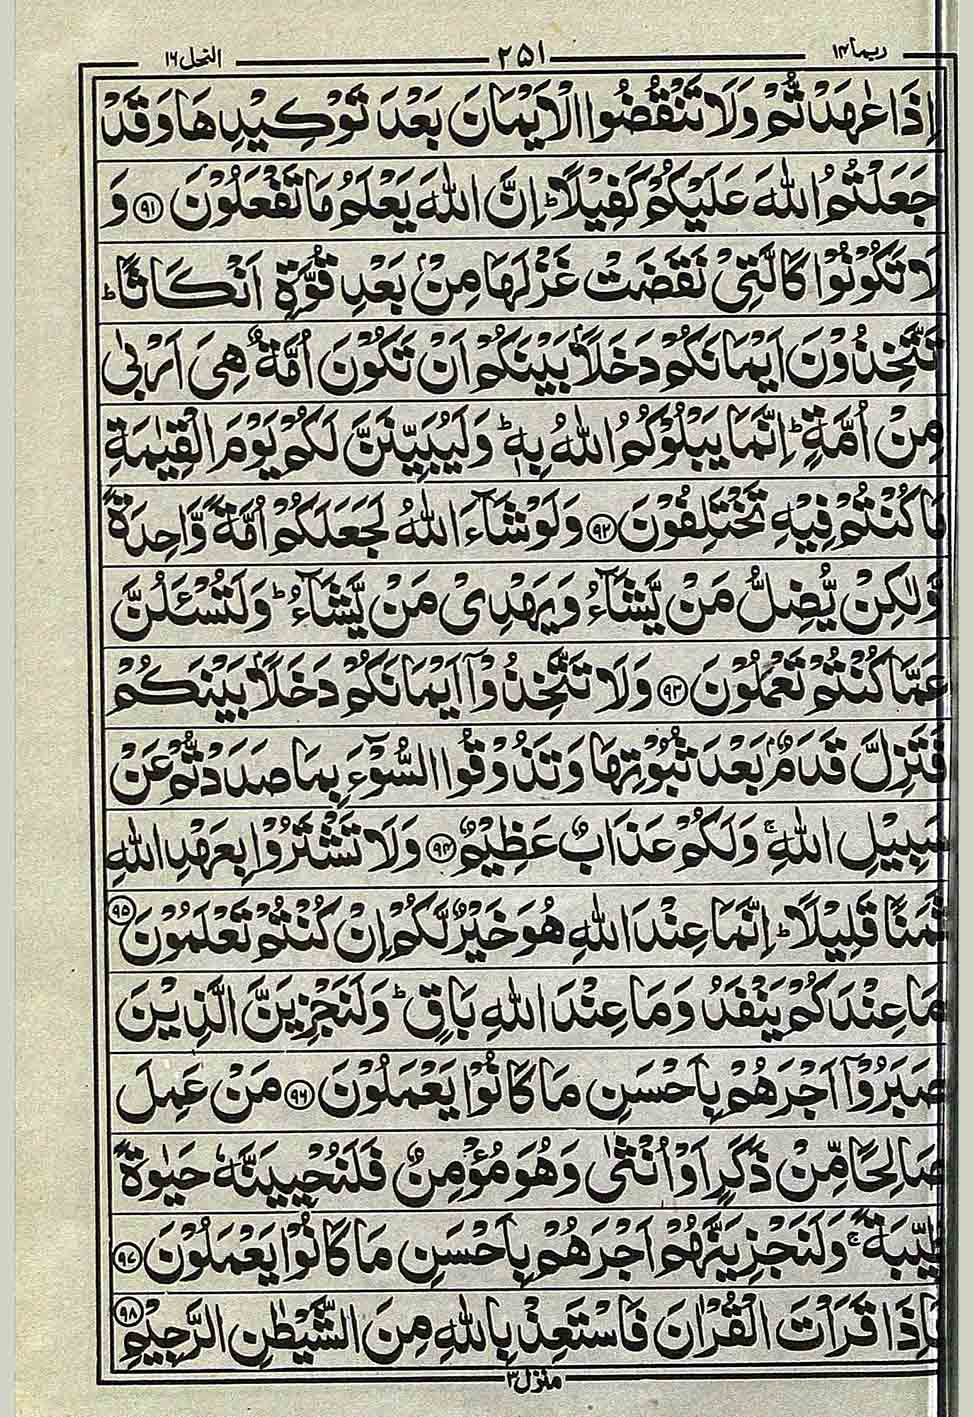 ربما ۱۴ ۲۵۱ النحل ۱۶
اِذَا عٰهَدْتُّمْ وَلَا تَنْقُضُوا الْاَيْمَانَ بَعْدَ تَوْكِيْدِهَا وَقَدْ
جَعَلْتُمُ اللّٰهَ عَلَيْكُمْ كَفِيْلًا ؕ اِنَّ اللّٰهَ يَعْلَمُ مَا تَفْعَلُوْنَ ﴿۹۱﴾ وَ
لَا تَكُوْنُوْا كَالَّتِىْ نَقَضَتْ غَزْلَهَا مِنْۢ بَعْدِ قُوَّةٍ اَنْكَاثًا ؕ
تَتَّخِذُوْنَ اَيْمَانَكُمْ دَخَلًۢا بَيْنَكُمْ اَنْ تَكُوْنَ اُمَّةٌ هِىَ اَرْبٰى
مِنْ اُمَّةٍ ؕ اِنَّمَا يَبْلُوْكُمُ اللّٰهُ بِهٖ ؕ وَلَيُبَيِّنَنَّ لَكُمْ يَوْمَ الْقِيٰمَةِ
مَا كُنْتُمْ فِيْهِ تَخْتَلِفُوْنَ ﴿۹۲﴾ وَلَوْ شَآءَ اللّٰهُ لَجَعَلَكُمْ اُمَّةً وَّاحِدَةً
وَّلٰكِنْ يُّضِلُّ مَنْ يَّشَآءُ وَيَهْدِىْ مَنْ يَّشَآءُ ؕ وَلَتُسْـَٔلُنَّ
عَمَّا كُنْتُمْ تَعْمَلُوْنَ ﴿۹۳﴾ وَلَا تَتَّخِذُوْٓا اَيْمَانَكُمْ دَخَلًۢا بَيْنَكُمْ
فَتَزِلَّ قَدَمٌۢ بَعْدَ ثُبُوْتِهَا وَتَذُوْقُوا السُّوْٓءَ بِمَا صَدَدْتُّمْ عَنْ
سَبِيْلِ اللّٰهِ ۚ وَلَكُمْ عَذَابٌ عَظِيْمٌ ﴿۹۴﴾ وَلَا تَشْتَرُوْا بِعَهْدِ اللّٰهِ
ثَمَنًا قَلِيْلًا ؕ اِنَّمَا عِنْدَ اللّٰهِ هُوَ خَيْرٌ لَّكُمْ اِنْ كُنْتُمْ تَعْلَمُوْنَ ﴿۹۵﴾
مَا عِنْدَكُمْ يَنْفَدُ وَمَا عِنْدَ اللّٰهِ بَاقٍ ؕ وَلَنَجْزِيَنَّ الَّذِيْنَ
صَبَرُوْٓا اَجْرَهُمْ بِاَحْسَنِ مَا كَانُوْا يَعْمَلُوْنَ ﴿۹۶﴾ مَنْ عَمِلَ
صَالِحًا مِّنْ ذَكَرٍ اَوْ اُنْثٰى وَهُوَ مُؤْمِنٌ فَلَنُحْيِيَنَّهٗ حَيٰوةً
طَيِّبَةً ۚ وَلَنَجْزِيَنَّهُمْ اَجْرَهُمْ بِاَحْسَنِ مَا كَانُوْا يَعْمَلُوْنَ ﴿۹۷﴾
فَاِذَا قَرَاْتَ الْقُرْاٰنَ فَاسْتَعِذْ بِاللّٰهِ مِنَ الشَّيْطٰنِ الرَّجِيْمِ ﴿۹۸﴾
منزل ۳